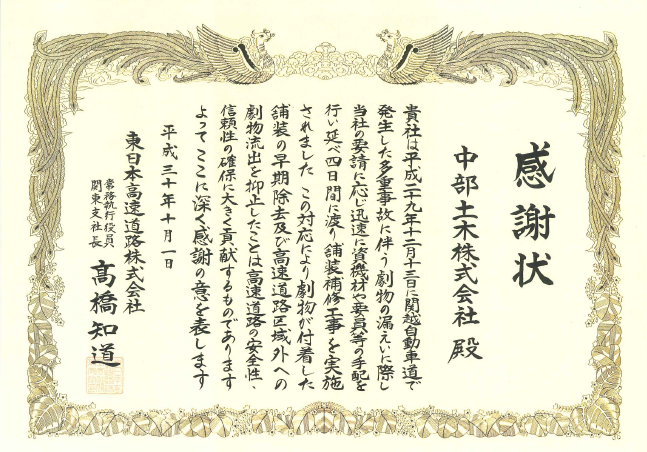 感謝状
中部土木株式会社 殿
貴社は平成二十九年十二月十三日に関越自動車道で
発生した多重事故に伴う劇物の漏えいに際し
当社の要請に応じ迅速に資機材や要員等の手配を
行い延べ四日間に渡り舗装補修工事を実施
されました この対応により劇物が付着した
舗装の早期除去及び高速道路区域外への
劇物流出を抑止したことは高速道路の安全性・
信頼性の確保に大きく貢献するものであります
よってここに深く感謝の意を表します
平成三十年十月一日
東日本高速道路株式会社
常務執行役員
関東支社長
髙橋知道